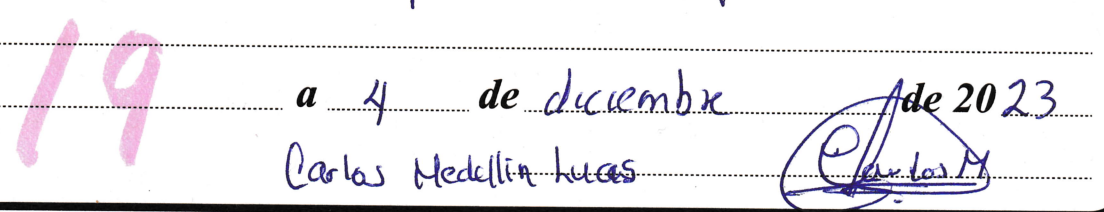 19
a 4 de diciembre de 2023
Carlos Medellin Lucas Carlos M